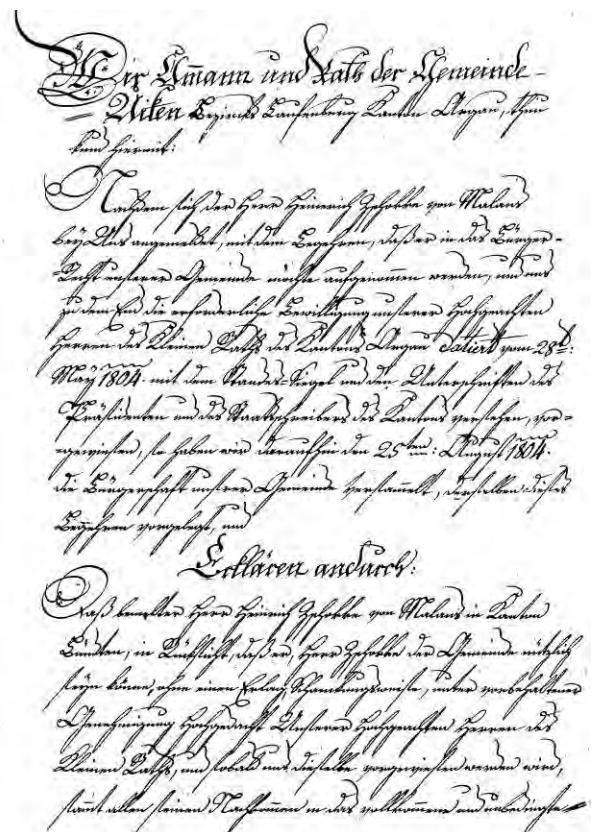 Wir Amann und Rath der Gemeinde
Uiken Bezircks Laufenburg Kanton Argau, thun
kund hiermit:
Nachdem sich der Herr Heinrich Zschokke von Malans
bey Uns angemeldet, mit dem Begehren, daß er in das Bürger-
Recht unserer Gemeinde möchte aufgenommen werden, und uns
zu dem End die erforderliche Bewilligung unserer Hochgeachten
Herren des Kleinen Raths des Kantons Argau datiert vom 28t:
May 1804. mit dem Standes-Siegel und den Unterschriften des
Präsidenten und des Staatsschreibers des Kantons versehen, vor-
gewiesen, so haben wir daraufhin den 25ten: August 1804.
die Bürgerschaft unsrer Gemeinde versammelt, derselben dieses
Begehren vorgelegt, und
Erklären andurch:
Daß bemelter Herr Heinrich Zschokke von Malans in Kanton
Bündten, in Rücksicht, daß er, Herr Zschokke der Gemeinde nützlich
seyn könne, ohne einen Erlag, Schankungsweise, unter vorbehaltener
Genehmigung Hochgedacht Unserer Hochgeachten Herren des
Kleinen Raths, und sobald uns dieselbe vorgewiesen werden wird,
samt allen seinen Nachkommen in das vollkommene und unbedingte